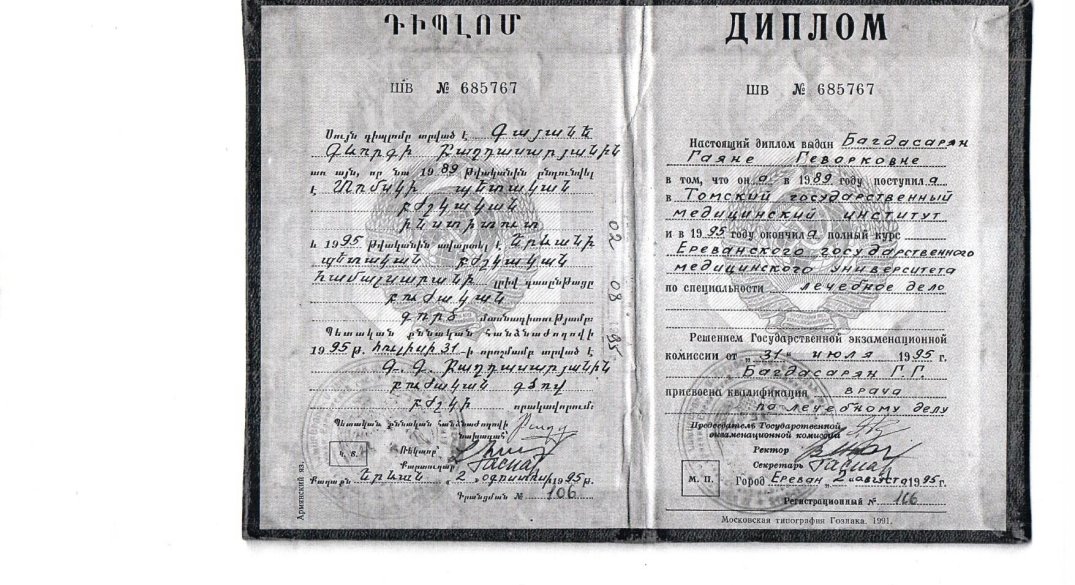 ԴԻՊԼՈՄ
ШВ № 685767
Սույն դիպլոմը տրված է Գայանե
Գևորգի Բաղդասարյանին
առ այն, որ նա 1989 թվականին ընդունվել
է Տոմսկի պետական
բժշկական
ինստիտուտ
և 1995 թվականին ավարտել է Երևանի
պետական բժշկական
համալսարանի լրիվ դասընթացը
բուժական
գործ մասնագիտությամբ:
Պետական քննական հանձնաժողովի
1995 թ. հուլիսի 31-ի որոշմամբ տրված է
Գ. Գ. Բաղդասարյանին
բուժական գծով
բժշկի որակավորում:
Պետական քննական հանձնաժողովի
նախագահ
Կ. Տ.
Ռեկտոր
Քարտուղար
Քաղաքն Երևան «2» օգոստոսի 1995 թ.
Գրանցման № 106
Армянский яз.
02 08 95
ДИПЛОМ
ШВ № 685767
Настоящий диплом выдан Багдасарян
Гаяне Геворковне
в том, что он а в 1989 году поступил а
в Томский государственный
медицинский институт
и в 1995 году окончил а полный курс
Ереванского государственного
медицинского университета
по специальности лечебное дело
Решением Государственной экзаменационной
комиссии от „31“ июля 1995 г.
Багдасарян Г.Г.
присвоена квалификация врача
по лечебному делу
Председатель Государственной
экзаменационной комиссии
Ректор
Секретарь
М. П.
Город Ереван 2 „августа 1995 г.
Регистрационный № 106
Московская типография Гознака. 1991.